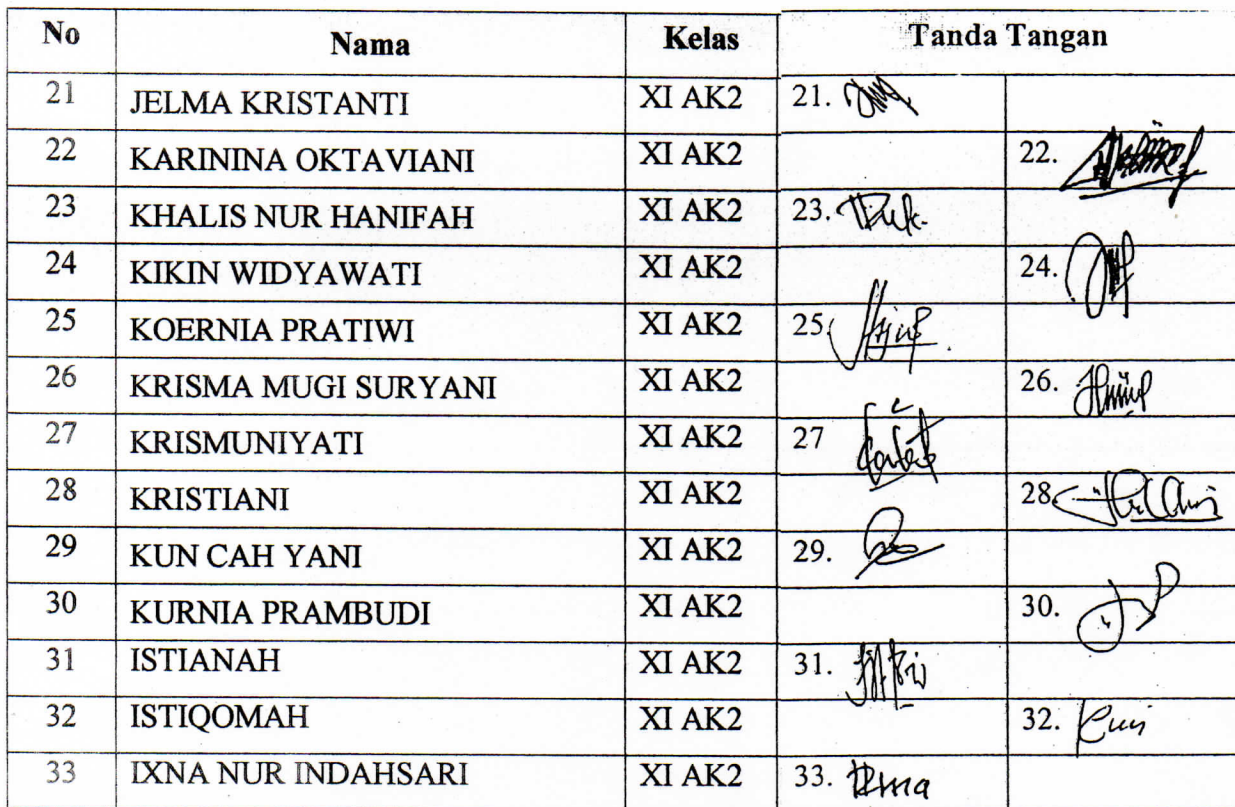 No Nama Kelas Tanda Tangan
21 JELMA KRISTANTI XI AK2 21.
22 KARININA OKTAVIANI XI AK2 22.
23 KHALIS NUR HANIFAH XI AK2 23.
24 KIKIN WIDYAWATI XI AK2 24.
25 KOERNIA PRATIWI XI AK2 25.
26 KRISMA MUGI SURYANI XI AK2 26.
27 KRISMUNIYATI XI AK2 27
28 KRISTIANI XI AK2 28.
29 KUN CAH YANI XI AK2 29.
30 KURNIA PRAMBUDI XI AK2 30.
31 ISTIANAH XI AK2 31.
32 ISTIQOMAH XI AK2 32.
33 IXNA NUR INDAHSARI XI AK2 33.